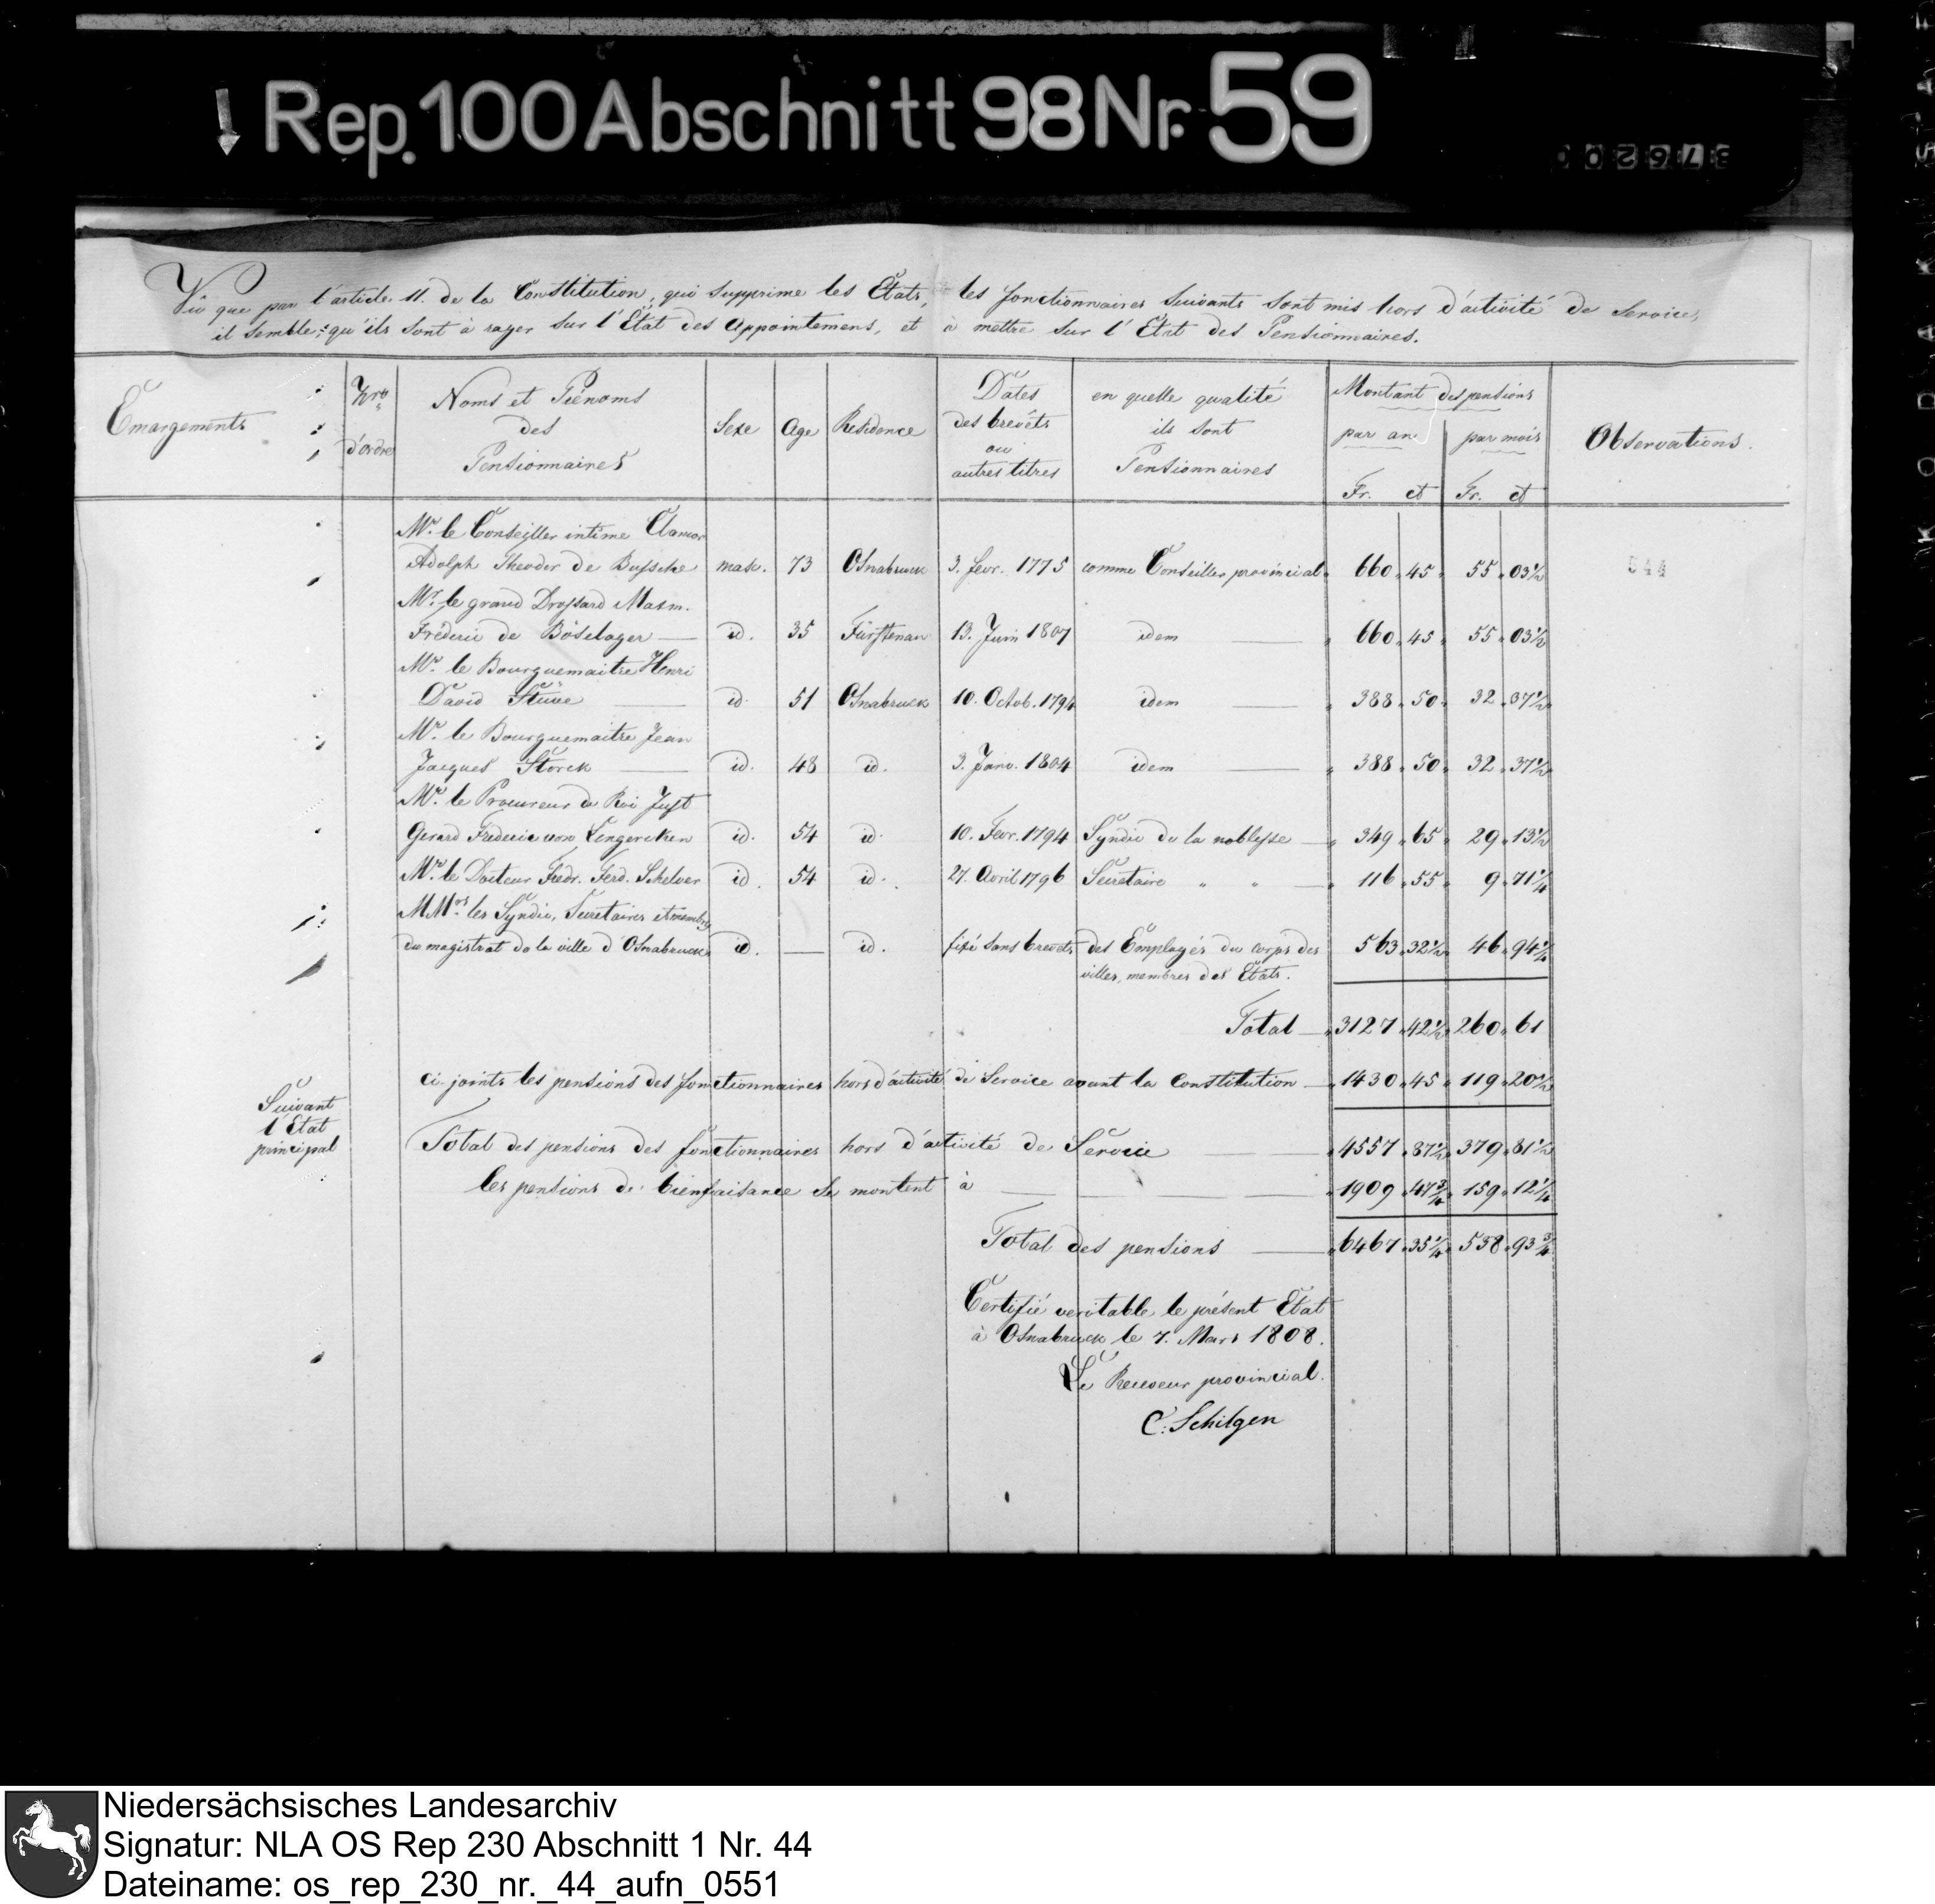 Rep. 100 Abschnitt 98 Nr. 59
Vû que par l'article 11. de la Constitution, qui supprime les Etats, les fonctionnaires suivants sont mis hors d'activité de Service,
il semble, qu'ils sont à rayer sur l'Etat des Appointemens, et à mettre sur l'Etat des Pensionnaires.
Emargements
Nro d'ordre
Noms et Prénoms des Pensionnaires
Sexe
Age
Residence
Dates des brevêts ou autres titres
en quelle qualité ils sont Pensionnaires
Montant des pensions
par an
par mois
Fr. ct Fr. ct
Observations.
Mr. le Conseiller intime Clamor
Adolph Theodor de Bussche masc. 73 Osnabruck 3. fevr. 1775 comme Conseiller provincial 660 45 55 03 1/2
544
Mr. le grand Drossard Maxm.
Fréderic de Böselager id. 35 Fürstenau 13. Juin 1807 idem 660 45 55 03 1/2
Mr. le Bourguemaitre Henri
David Stüve id. 51 Osnabruck 10. Octob. 1794 idem 388 50 32 37 1/2
Mr. le Bourguemaitre Jean
Jacques Storck id. 48 id. 3. Janv. 1804 idem 388 50 32 37 1/2
Mr. le Procureur du Roi Just
Gerard Frederic von Lengercken id. 54 id. 10. Fevr. 1794 Syndic de la noblesse 349 65 29 13 1/2
Mr. le Docteur Fredr. Ferd. Schelver id. 54 id. 27. Avril 1796 Secretaire " " 116 55 9 71 1/4
MMrs. les Syndic, Secretaires et membres
du magistrat de la ville d'Osnabruck id. — id. fixé sans brevets des Employés du corps des 563 32 1/2 46 94 1/4
villes, membres des Etats.
Total 3127 42 1/2 260 61
ci-joints les pensions des fonctionnaires hors d'activité de Service avant la Constitution 1430 45 119 20 1/2
Suivant
l'Etat
principal
Total des pensions des fonctionnaires hors d'activité de Service 4557 87 1/2 379 81 1/2
les pensions de bienfaisance se montent à 1909 47 3/4 159 12 1/4
Total des pensions 6467 35 1/4 538 93 3/4
Certifié veritable le présent Etat
à Osnabruck le 7. Mars 1808.
Le Receveur provincial.
C. Schilgen
Niedersächsisches Landesarchiv
Signatur: NLA OS Rep 230 Abschnitt 1 Nr. 44
Dateiname: os_rep_230_nr._44_aufn_0551